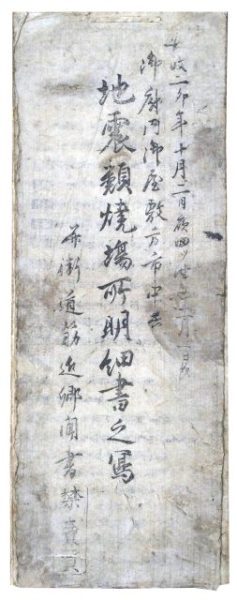 安政二卯年十月二日夜四ツ
御廓内御屋敷方市中共
地震類焼場所明細書之写
并街道筋近郷聞書禁売買